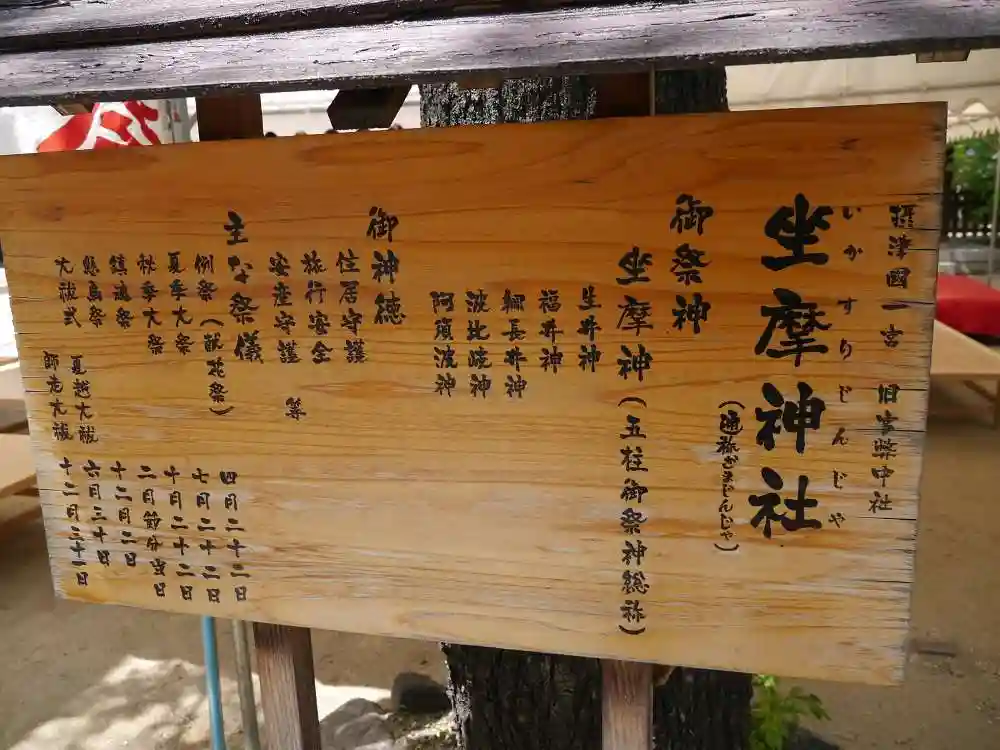 摂津國一宮 旧官幣中社
いかすりじんじゃ
坐摩神社
(通称ざまじんじゃ)
御祭神
坐摩神(五柱御祭神総称)
生井神
福井神
綱長井神
波比岐神
阿須波神
御神徳
住居守護
旅行安全
安産守護 等
主な祭儀
例祭(献花祭) 四月二十二日
夏季大祭 七月二十二日
秋季大祭 十月二十二日
鎮魂祭 二月節分当日
十二月二日
大祓式 夏越大祓 六月三十日
師走大祓 十二月三十一日